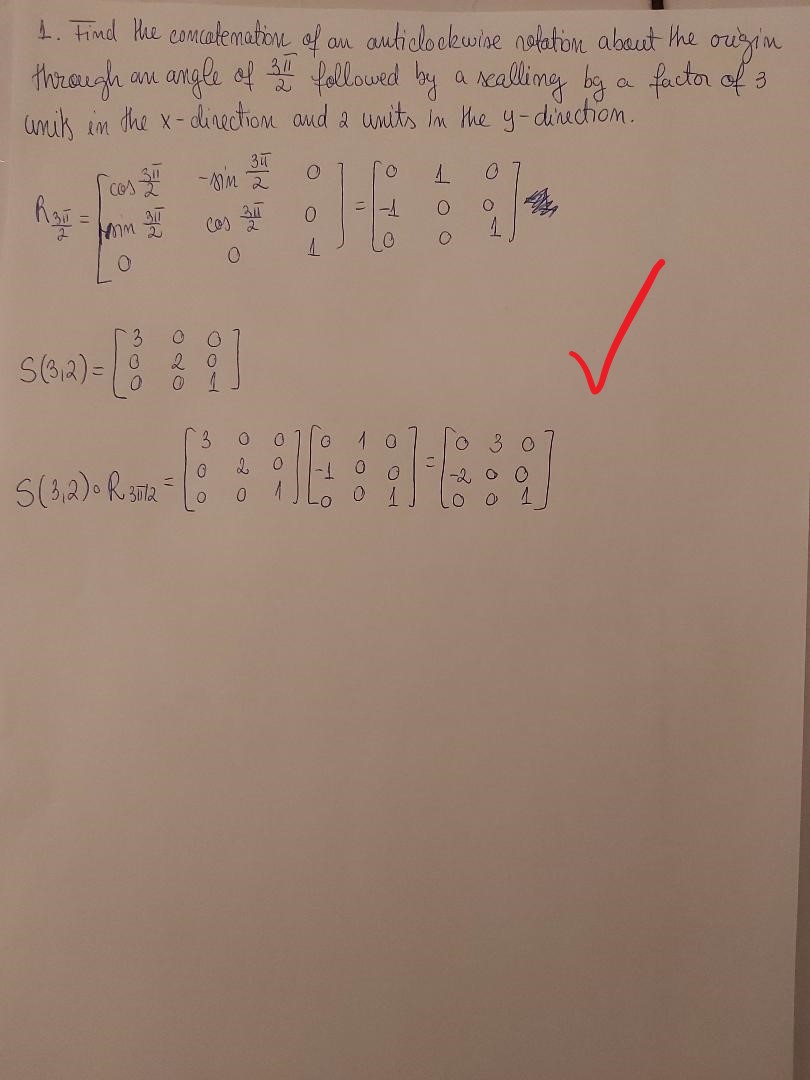 1. Find the concatenation of an anticlockwise rotation about the origin
through an angle of 3π/2 followed by a scalling by a factor of 3
units in the x-direction and 2 units in the y-direction.
R 3π/2 = [cos 3π/2 -sin 3π/2 0 ] = [0 1 0]
sin 3π/2 cos 3π/2 0 -1 0 0
0 0 1 0 0 1
S(3,2) = [3 0 0]
0 2 0
0 0 1
S(3,2)∘R 3π/2 = [3 0 0] [0 1 0] = [0 3 0]
0 2 0 -1 0 0 -2 0 0
0 0 1 0 0 1 0 0 1